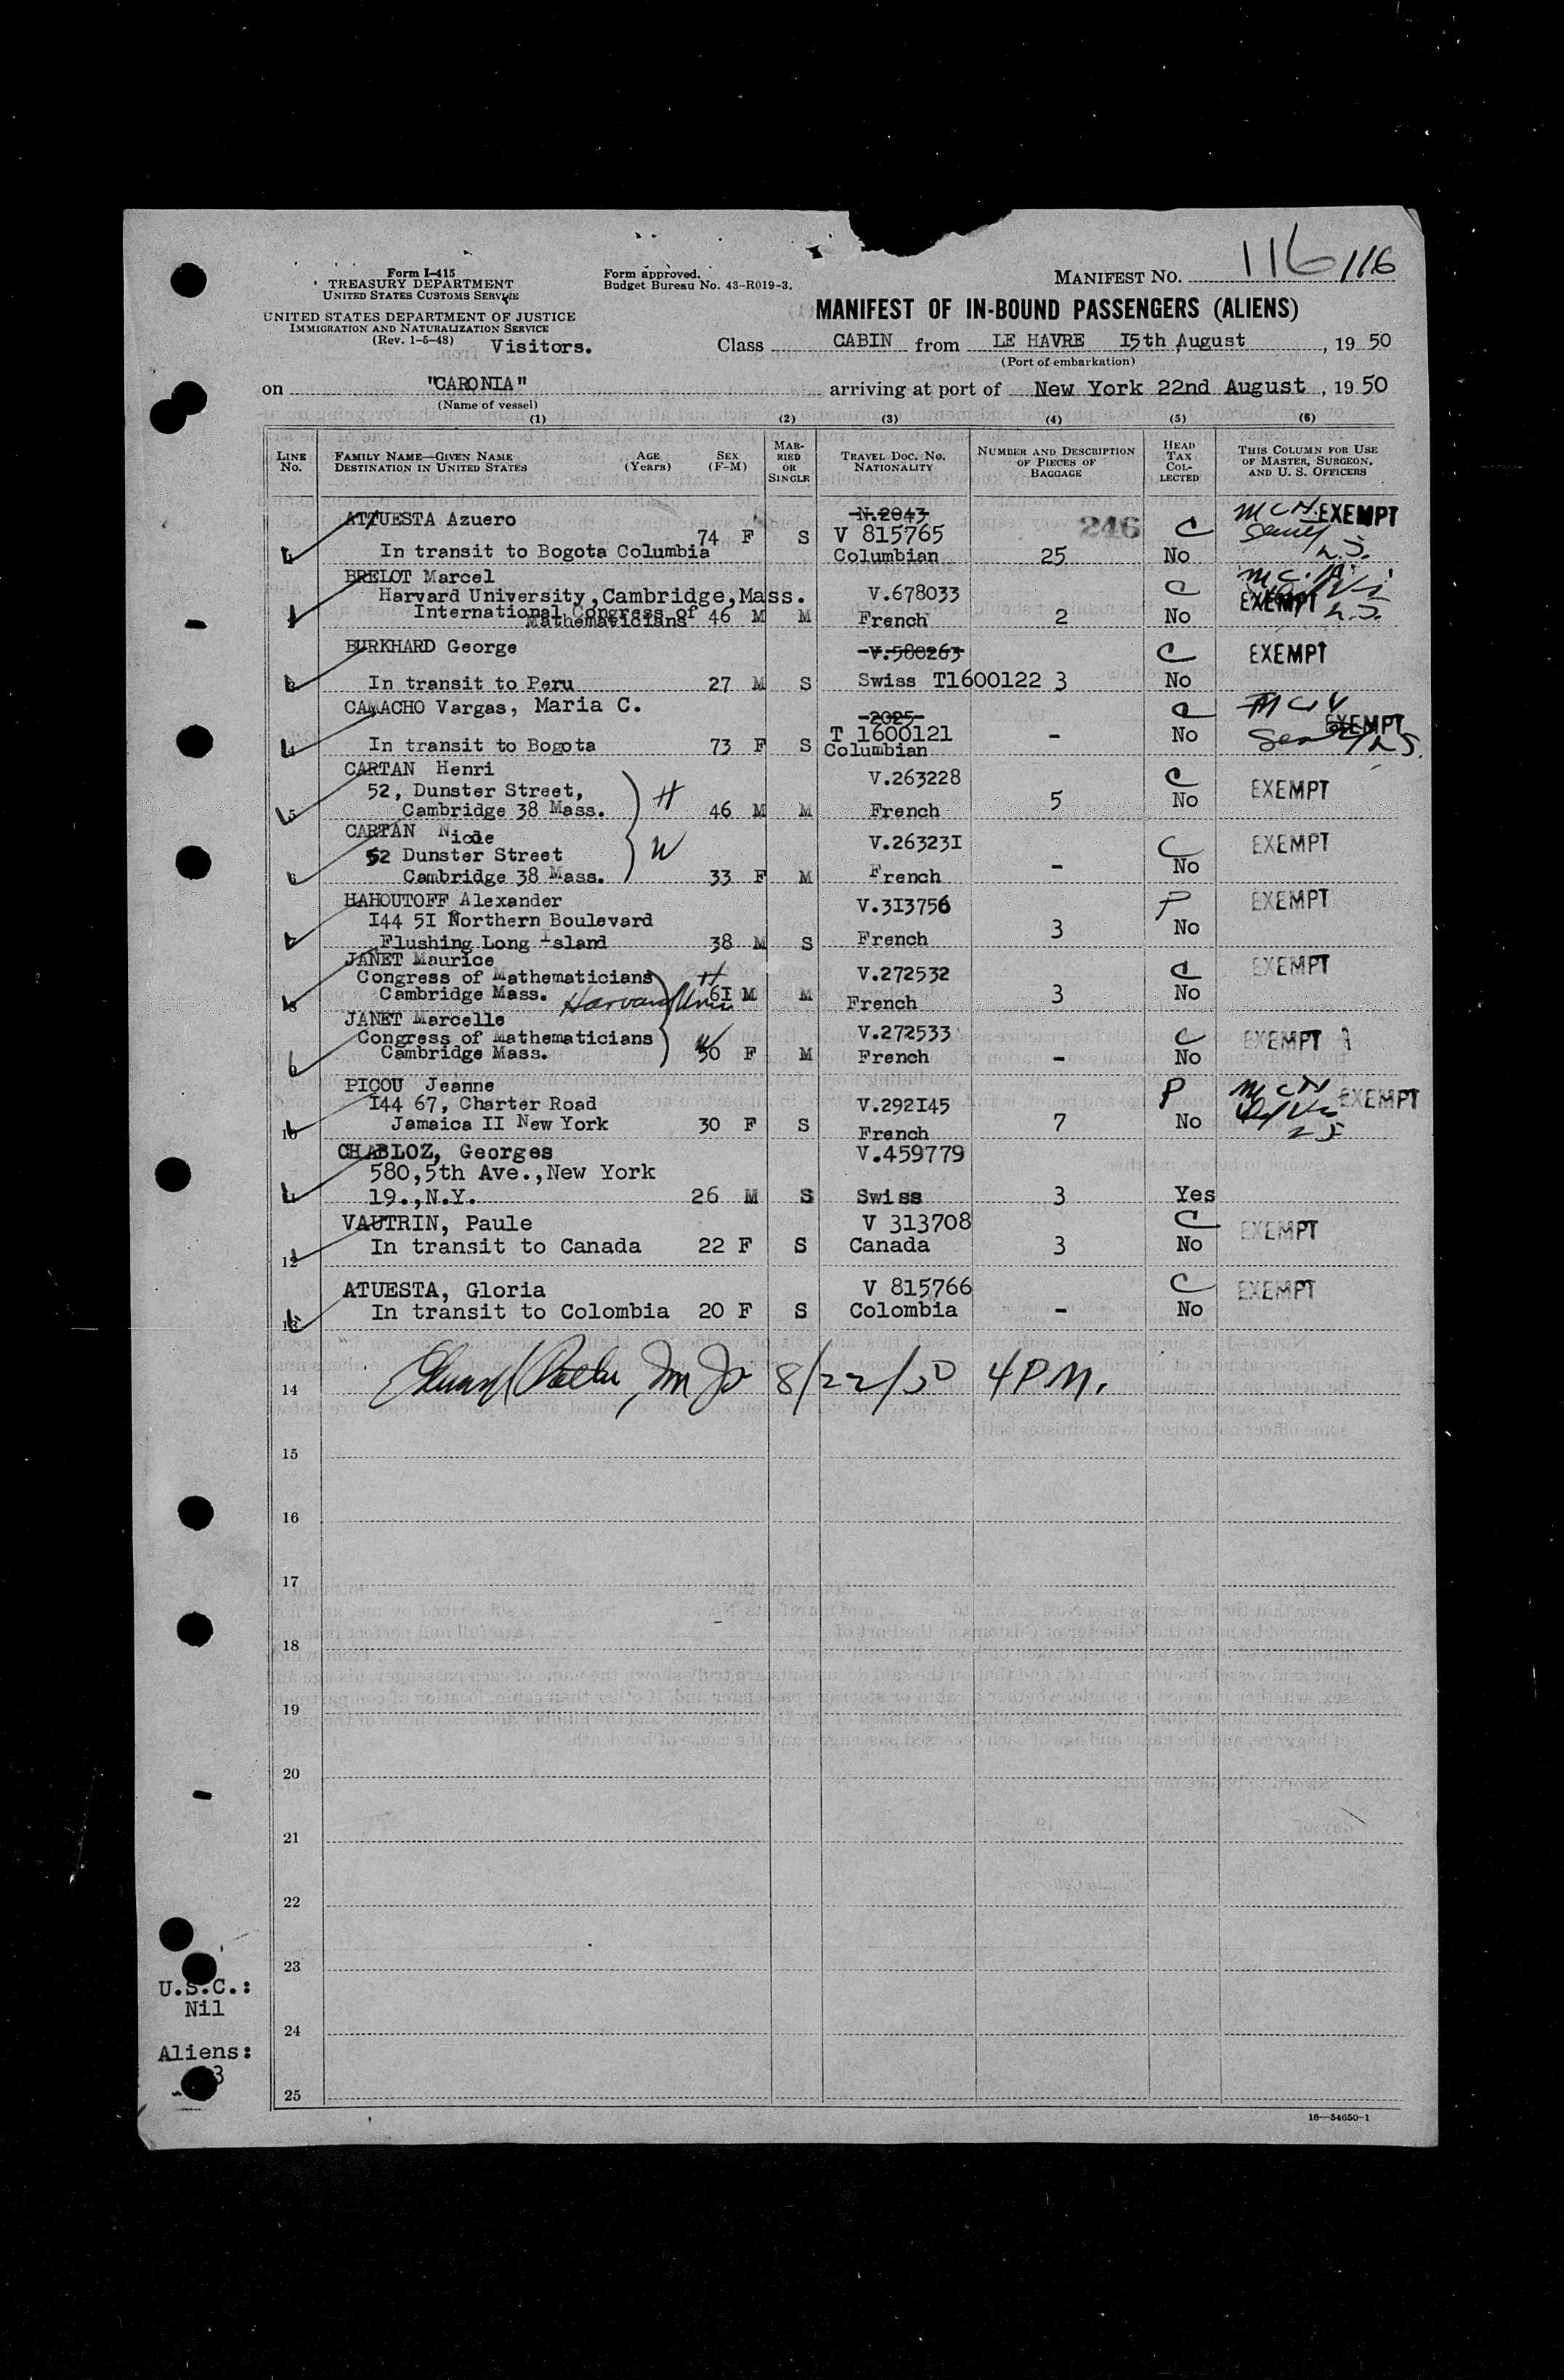 116 116
Form I-415
TREASURY DEPARTMENT
UNITED STATES CUSTOMS SERVICE
Form approved.
Budget Bureau No. 43-R019-3.
MANIFEST NO.
UNITED STATES DEPARTMENT OF JUSTICE
IMMIGRATION AND NATURALIZATION SERVICE
(Rev. 1-5-48) Visitors.
MANIFEST OF IN-BOUND PASSENGERS (ALIENS)
Class CABIN from LE HAVRE I5th August, 19 50
(Port of embarkation)
on "CARONIA" arriving at port of New York 22nd August, 19 50
(Name of vessel)
(1) (2) (3) (4) (5) (6)
LINE No. FAMILY NAME—GIVEN NAME DESTINATION IN UNITED STATES AGE (Years) SEX (F-M) MARRIED OR SINGLE TRAVEL DOC. No. NATIONALITY NUMBER AND DESCRIPTION OF PIECES OF BAGGAGE HEAD TAX COLLECTED THIS COLUMN FOR USE OF MASTER, SURGEON, AND U. S. OFFICERS
ATTUESTA Azuero N.2043 246 C EXEMPT
74 F S V 815765
In transit to Bogota Columbia Columbian 25 No
BRELOT Marcel C
Harvard University, Cambridge, Mass. V.678033 EXEMPT
International Congress of
Mathematicians 46 M M French 2 No
BURKHARD George V.580263 C EXEMPT
In transit to Peru 27 M S Swiss T1600122 3 No
CAMACHO Vargas, Maria C. 2025 C EXEMPT
T 1600121
In transit to Bogota 73 F S Columbian - No
CARTAN Henri V.263228 C EXEMPT
52, Dunster Street, 5 No
Cambridge 38 Mass. H 46 M M French
CARTAN Nicole V.26323I C EXEMPT
52 Dunster Street W - No
Cambridge 38 Mass. 33 F M French
HAHOUTOFF Alexander V.3I3756 P EXEMPT
I44 5I Northern Boulevard 3 No
Flushing Long Island 38 M S French
JANET Maurice EXEMPT
Congress of Mathematicians H V.272532 C
Cambridge Mass. Harvard Univ 6I M M French 3 No
JANET Marcelle V.272533 C EXEMPT
Congress of Mathematicians W
Cambridge Mass. 50 F M French - No
PICOU Jeanne P EXEMPT
I44 67, Charter Road V.292I45
10 Jamaica II New York 30 F S French 7 No
CHABLOZ, Georges V.459779
580,5th Ave.,New York
19.,N.Y. 26 M S Swiss 3 Yes
VAUTRIN, Paule V 313708 C EXEMPT
12 In transit to Canada 22 F S Canada 3 No
ATUESTA, Gloria V 815766 C EXEMPT
13 In transit to Colombia 20 F S Colombia - No
14 8/22/50 4 P.M.
15
16
17
18
19
20
21
22
23
U.S.C.:
Nil
24
Aliens:
3
25
16—54650-1